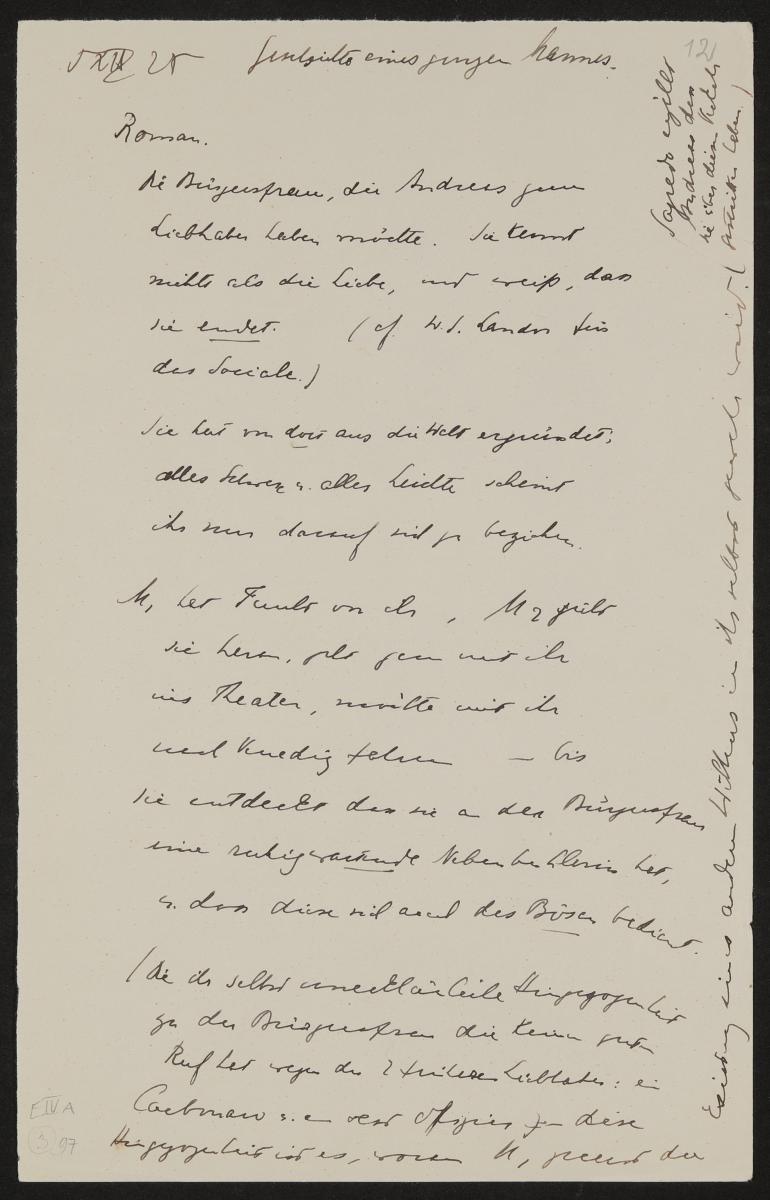 5 XII 25 Geschichte eines jungen Mannes.
12
Roman.
Die Bürgersfrau, die Andreas zum
Liebhaber haben möchte. Sie kennt
nichts als die Liebe, und weiß, dass
sie endet. (cf. W. S. Landor für
das Sociale.)
Sie hat von dort aus die Welt ergründet;
alles Schwere u. alles Leichte scheint
ihr nur darauf sich zu beziehen.
M1 hat Furcht vor ihr, M2 zieht
sie heran, geht gern mit ihr
ins Theater, möchte mit ihr
nach Venedig fahren – bis
sie entdeckt dass sie an der Bürgersfrau
eine ruhig wartende Nebenbuhlerin hat,
u. dass diese sich auch des Bösen bedient.
(Die ihr selbst unerklärliche Hingezogenheit
zu der Bürgersfrau die keinen guten
Ruf hat wegen der 2 früheren Liebhaber: ein
Carbonaro u. ein Offizier) – diese
Hingezogenheit ist es, woran M1 zuerst die
Existenz eines anderen Wesens in ihr selbst gewahr wird.
Sagredo
Andreas den
die über diesen
Leben)
E IV A
3 97